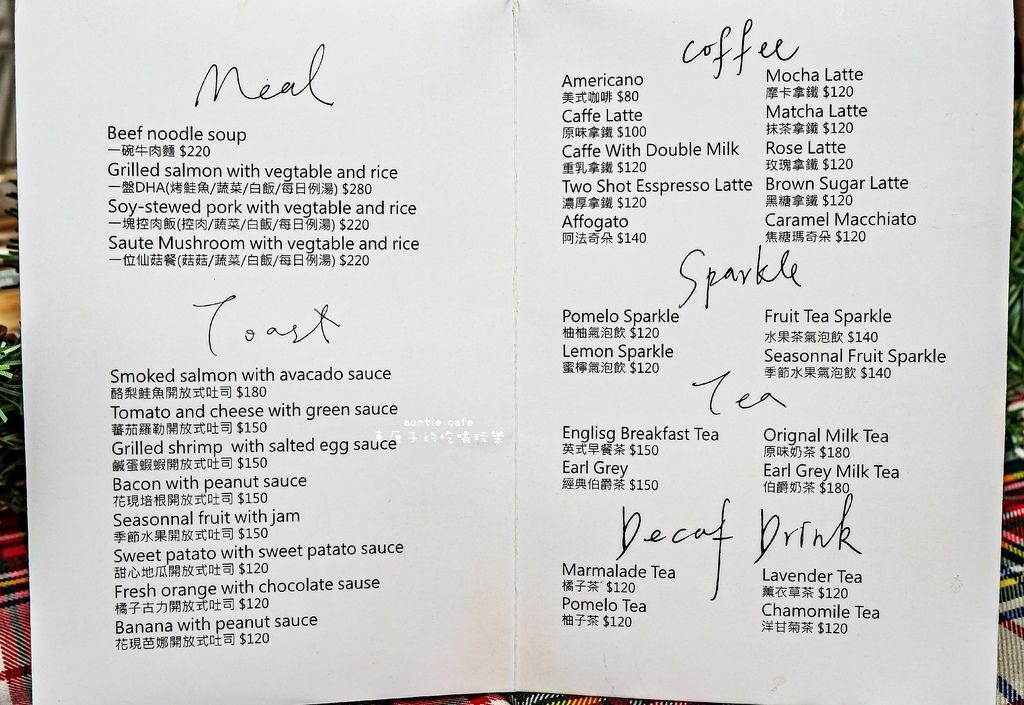 Meal
Beef noodle soup
一碗牛肉麵 $220
Grilled salmon with vegtable and rice
一盤DHA(烤鮭魚/蔬菜/白飯/每日例湯) $280
Soy-stewed pork with vegtable and rice
一塊控肉飯(控肉/蔬菜/白飯/每日例湯) $220
Saute Mushroom with vegtable and rice
一位仙菇餐(菇菇/蔬菜/白飯/每日例湯) $220
Toast
Smoked salmon with avacado sauce
酪梨鮭魚開放式吐司 $180
Tomato and cheese with green sauce
蕃茄羅勒開放式吐司 $150
Grilled shrimp with salted egg sauce
鹹蛋蝦蝦開放式吐司 $150
Bacon with peanut sauce
花現培根開放式吐司 $150
Seasonnal fruit with jam
季節水果開放式吐司 $150
Sweet patato with sweet patato sauce
甜心地瓜開放式吐司 $120
Fresh orange with chocolate sause
橘子古力開放式吐司 $120
Banana with peanut sauce
花現芭娜開放式吐司 $120
auntie cafe
子的吃喝玩樂
coffee
Americano
美式咖啡 $80
Caffe Latte
原味拿鐵 $100
Caffe With Double Milk
重乳拿鐵 $120
Two Shot Esspresso Latte
濃厚拿鐵 $120
Affogato
阿法奇朵 $140
Mocha Latte
摩卡拿鐵 $120
Matcha Latte
抹茶拿鐵 $120
Rose Latte
玫瑰拿鐵 $120
Brown Sugar Latte
黑糖拿鐵 $120
Caramel Macchiato
焦糖瑪奇朵 $120
Sparkle
Pomelo Sparkle
柚柚氣泡飲 $120
Lemon Sparkle
蜜檸氣泡飲 $120
Fruit Tea Sparkle
水果茶氣泡飲 $140
Seasonnal Fruit Sparkle
季節水果氣泡飲 $140
Tea
Englisg Breakfast Tea
英式早餐茶 $150
Earl Grey
經典伯爵茶 $150
Orignal Milk Tea
原味奶茶 $180
Earl Grey Milk Tea
伯爵奶茶 $180
Decaf Drink
Marmalade Tea
橘子茶 $120
Pomelo Tea
柚子茶 $120
Lavender Tea
薰衣草茶 $120
Chamomile Tea
洋甘菊茶 $120